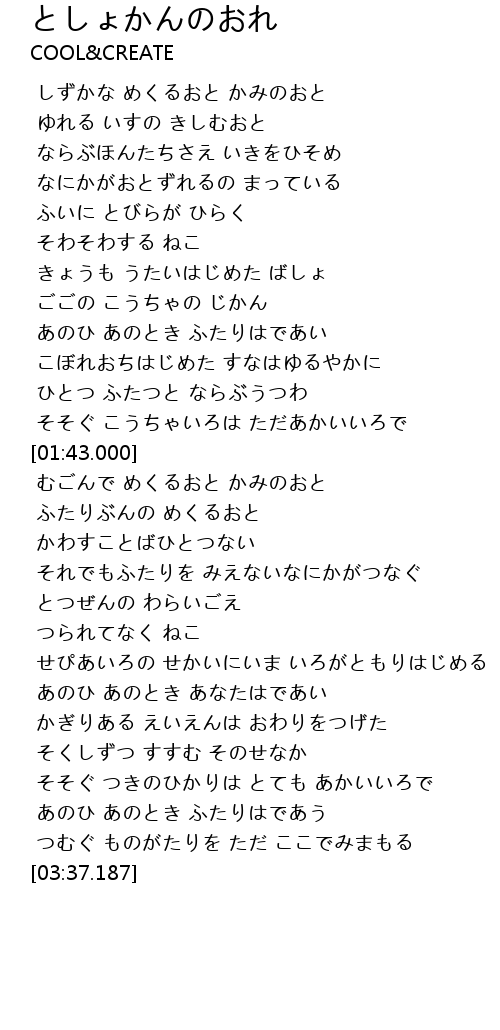 としょかんのおれ
COOL&CREATE
しずかな めくるおと かみのおと
ゆれる いすの きしむおと
ならぶほんたちさえ いきをひそめ
なにかがおとずれるの まっている
ふいに とびらが ひらく
そわそわする ねこ
きょうも うたいはじめた ばしょ
ごごの こうちゃの じかん
あのひ あのとき ふたりはであい
こぼれおちはじめた すなはゆるやかに
ひとつ ふたつと ならぶうつわ
そそぐ こうちゃいろは ただあかいいろで
[01:43.000]
むごんで めくるおと かみのおと
ふたりぶんの めくるおと
かわすことばひとつない
それでもふたりを みえないなにかがつなぐ
とつぜんの わらいごえ
つられてなく ねこ
せぴあいろの せかいにいま いろがともりはじめる
あのひ あのとき あなたはであい
かぎりある えいえんは おわりをつげた
そくしずつ すすむ そのせなか
そそぐ つきのひかりは とても あかいいろで
あのひ あのとき ふたりはであう
つむぐ ものがたりを ただ ここでみまもる
[03:37.187]